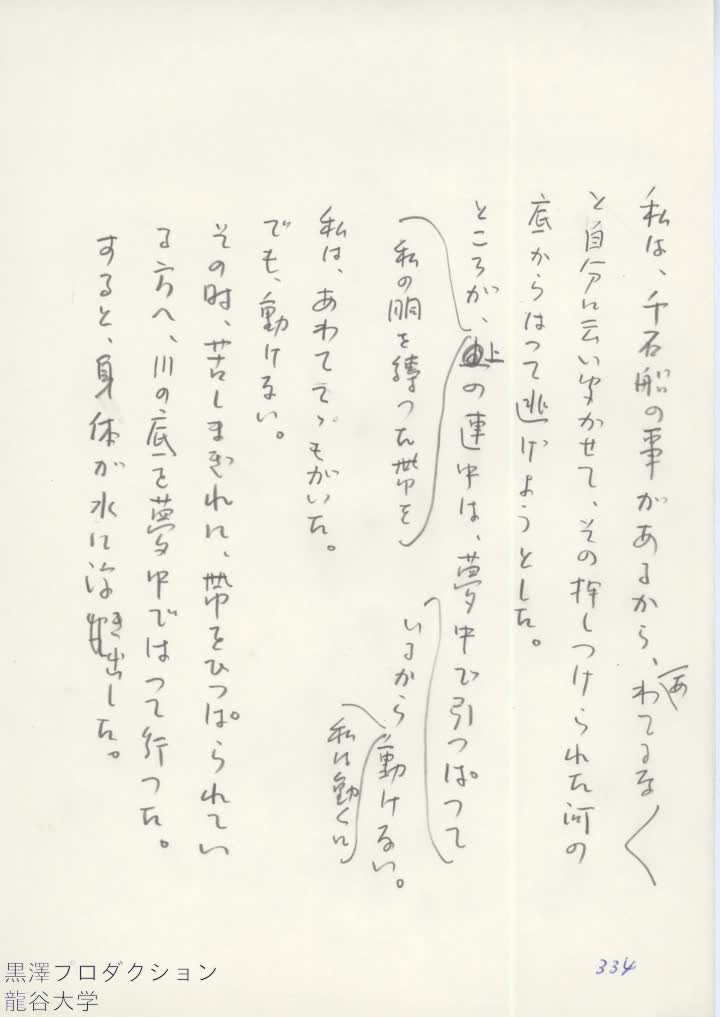 私は、千石船の事があるから、わてるな
あ
と自分に云い聞かせて、その押しつけられた河の
底からはつて逃げようとした。
ところが、上の連中は、夢中で引つぱつて
私の胴を縛つた帯を
いるから動けない。
私は動くに
私は、あわてて、もがいた。
でも、動けない。
その時、苦しまぎれに、帯をひつぱられてい
る方へ、川の底を夢中ではつて行つた。
すると、身体が水に浮き出した。
334
黒澤プロダクション
龍谷大学